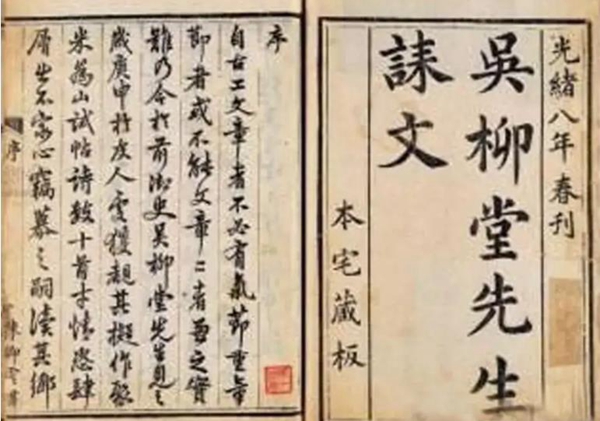 光緒八年春刊
吳柳堂先生
誄文
本宅藏板
序
自古工文章者不必有氣節重氣
節者或不能文章二者兼之實
難乃今於前御史吳柳堂先生見之
歲庚申於友人處獲觀其擬作聚
米為山試帖詩數十首才情恣肆
層出不窮心竊慕之嗣讀其鄉
序